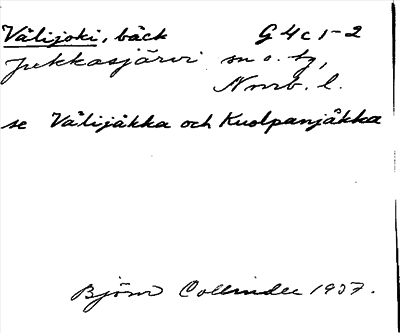 Välijoki, bäck G4c1-2
Jukkasjärvi sn o. tg,
Norrb. l.
se Välijåkka och Kuolpanjåkka
Björn Collinder 1937.